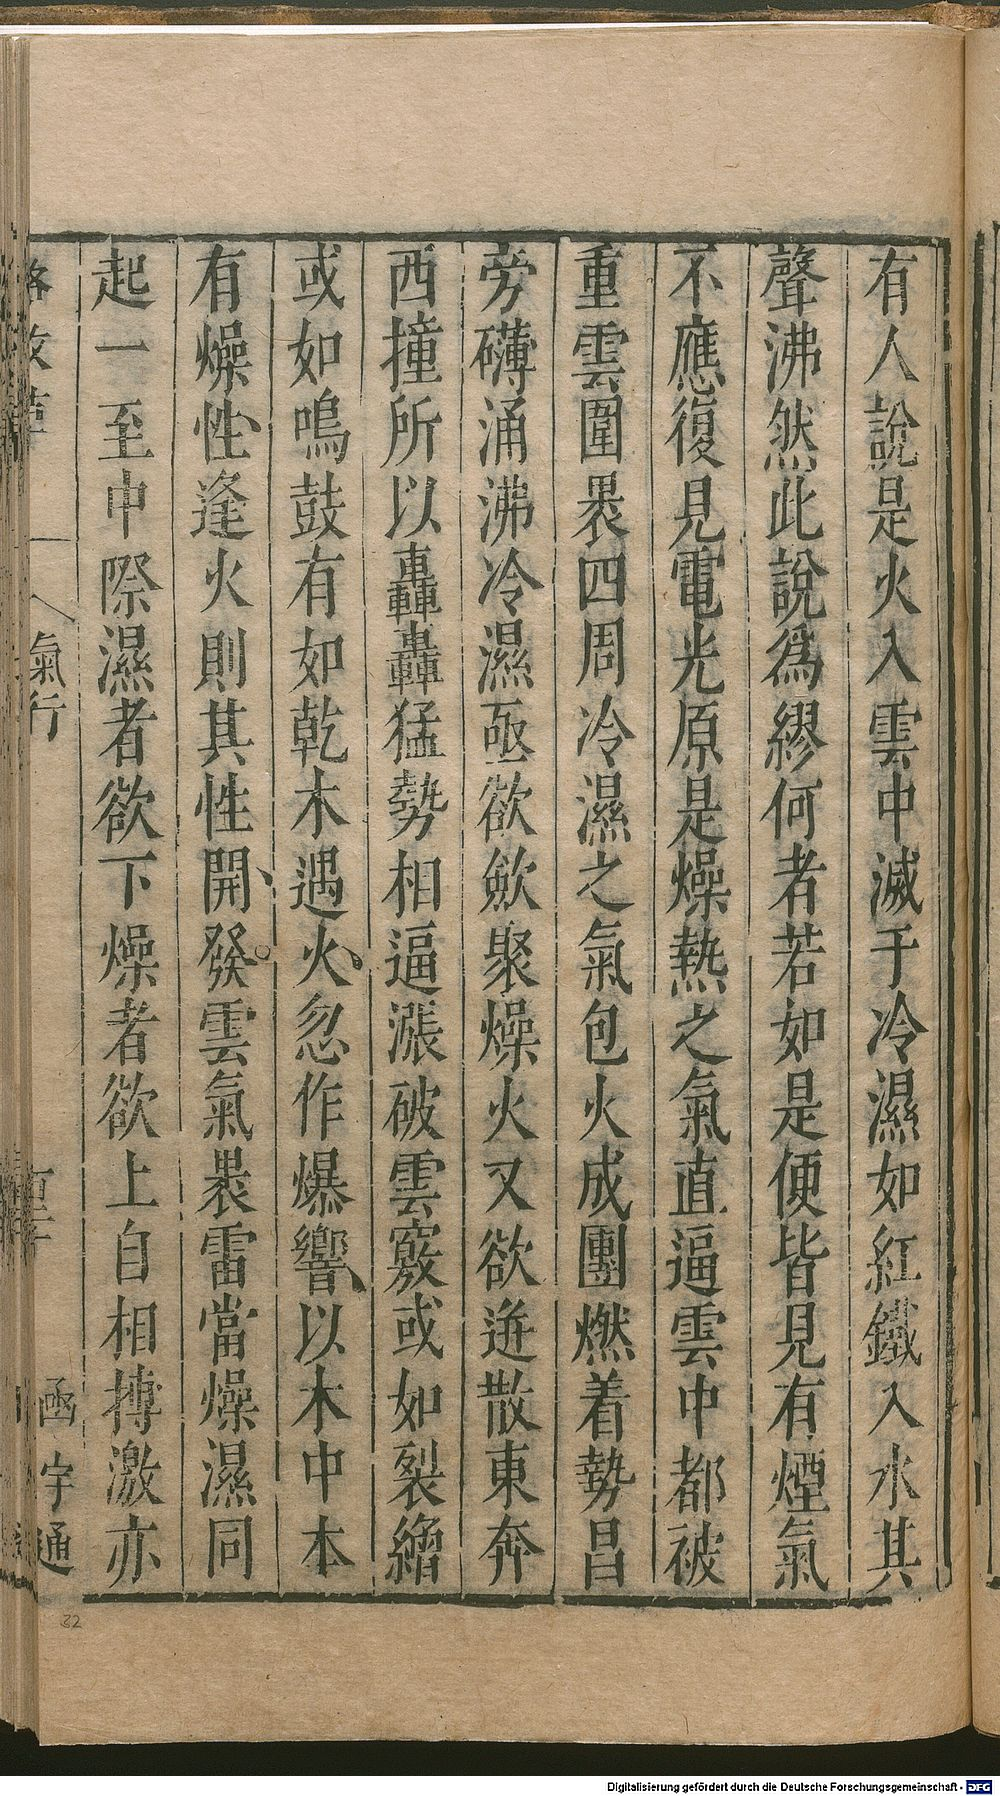 有人說是火入雲中滅于冷濕如紅鐵入水其
聲沸然此說爲繆何者若如是便皆見有煙氣
不應復見電光原是燥熱之氣直逼雲中都被
重雲圍褁四周冷濕之氣包火成團燃着勢昌
旁礴涌沸冷濕亟欲歛聚燥火又欲迸散東奔
西撞所以轟轟猛勢相逼漲破雲竅或如裂繒
或如鳴鼓有如乾木遇火忽作爆響以木中本
有燥性逢火則其性開發雲氣褁雷當燥濕同
起一至中際濕者欲下燥者欲上自相摶激亦
格致草
氣行
函宇通
32
Digitalisierung gefördert durch die Deutsche Forschungsgemeinschaft - DFG